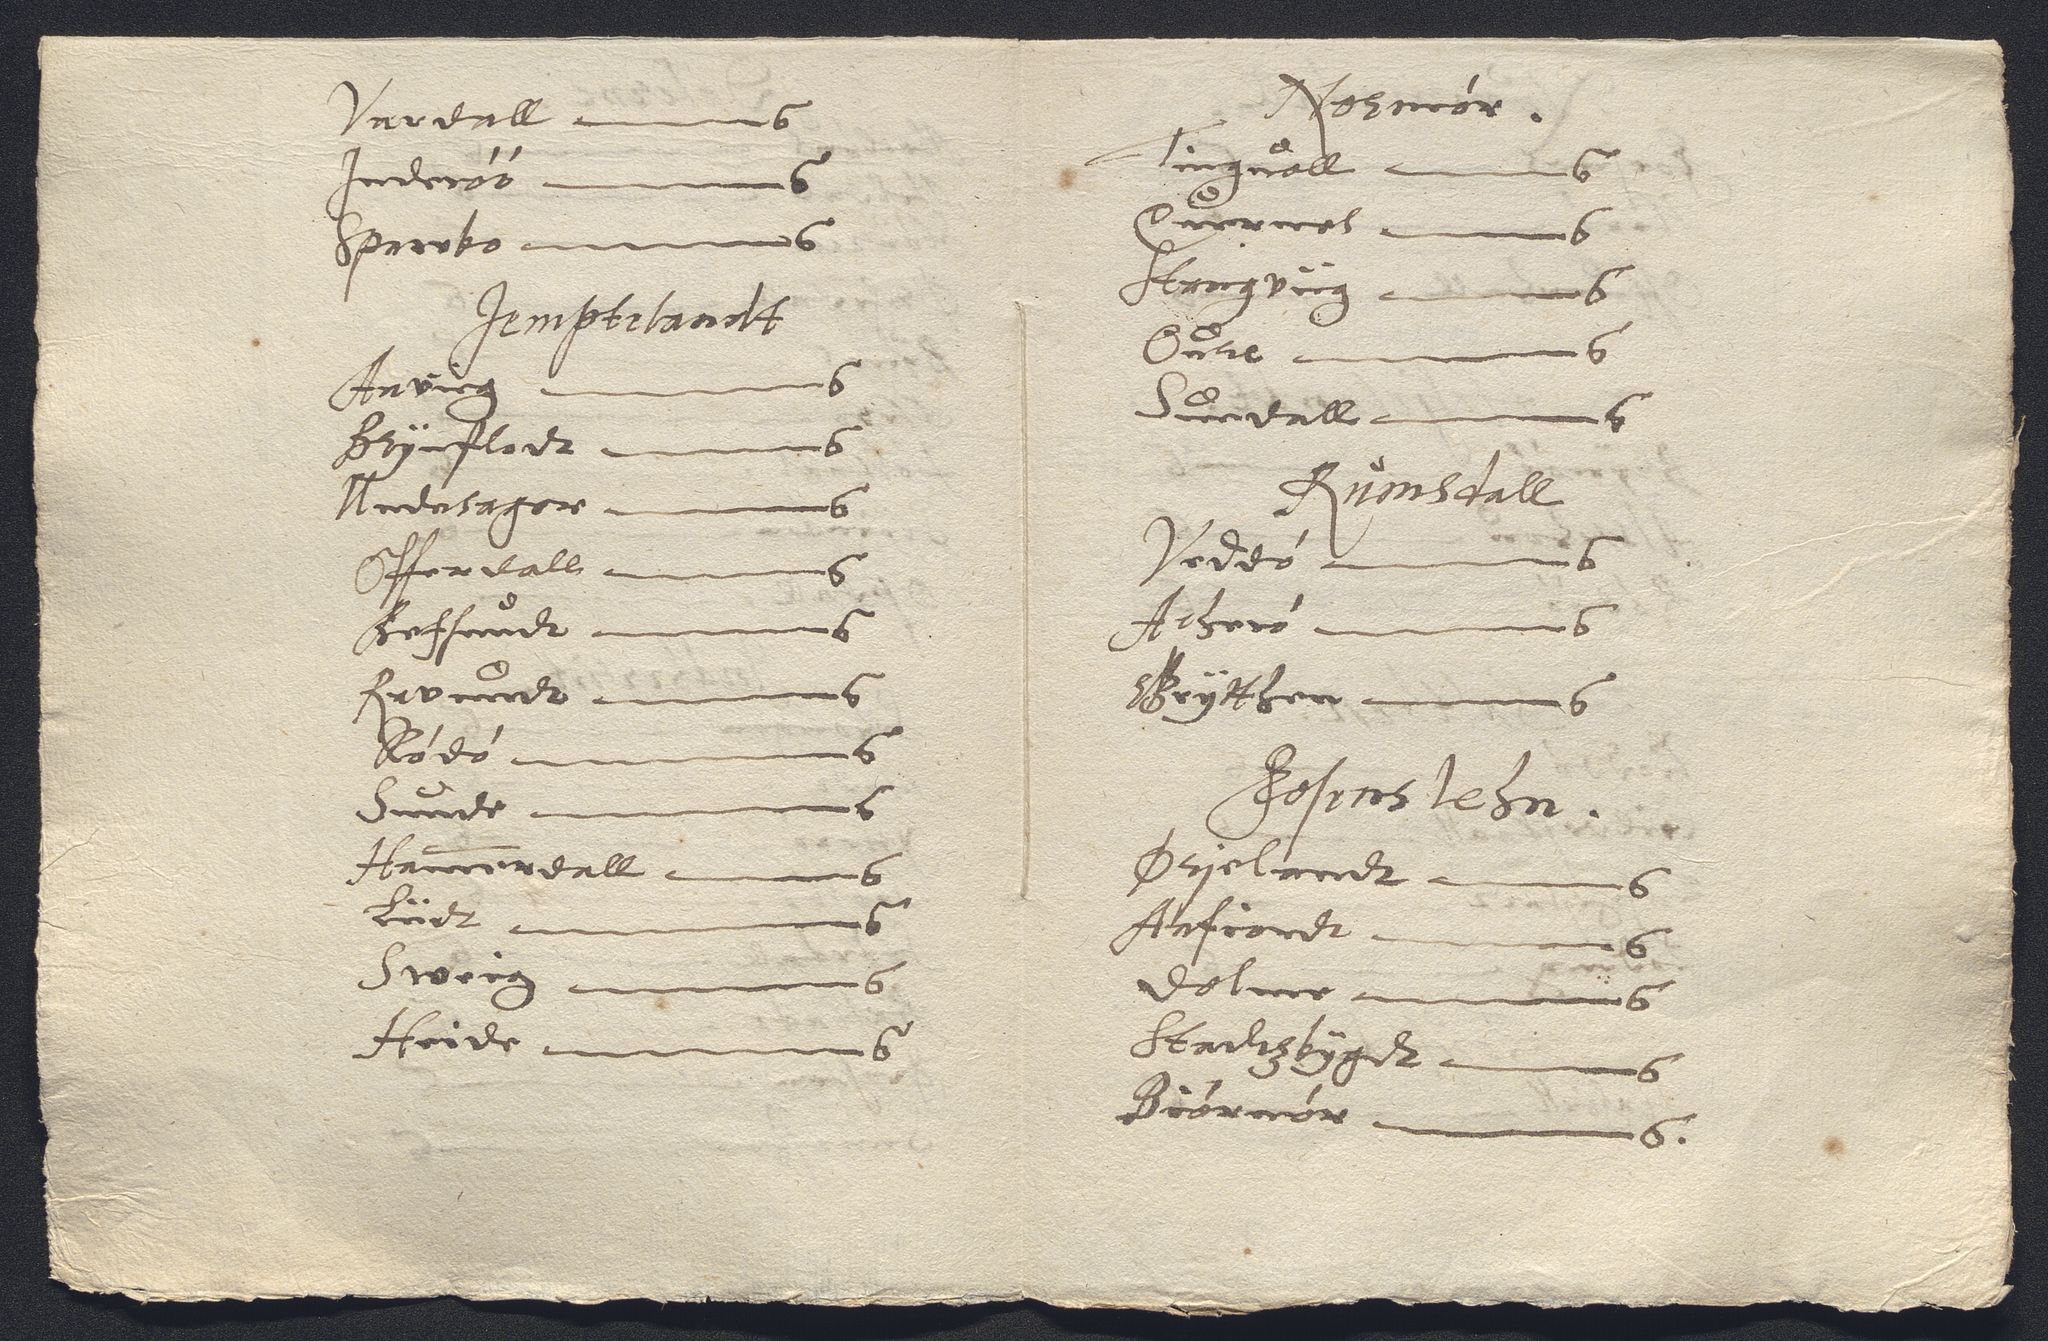 Vardall 6
Inderöö 6
Sparbo 6
Jemptelandt
Aaving 6
Brÿnflodt 6
Undesagor 6
Offerdall 6
Reffsundt 6
Revundt 6
Rödö 6
Sunde 6
Hamerdall 6
Liidt 6
Sweig 6
Heide 6
Nozmör.
Tinguoll 6
Quernes 6
Stangviig 6
Ouse 6
Sundall 6
Rumsdall
Veddö 6
Akerö 6
Grÿtthen 6
Fosenslehn.
Ørjelandt 6
Aafiordt 6
Dolme 6
Stadtzbÿgdt 6
Biörnör 6.